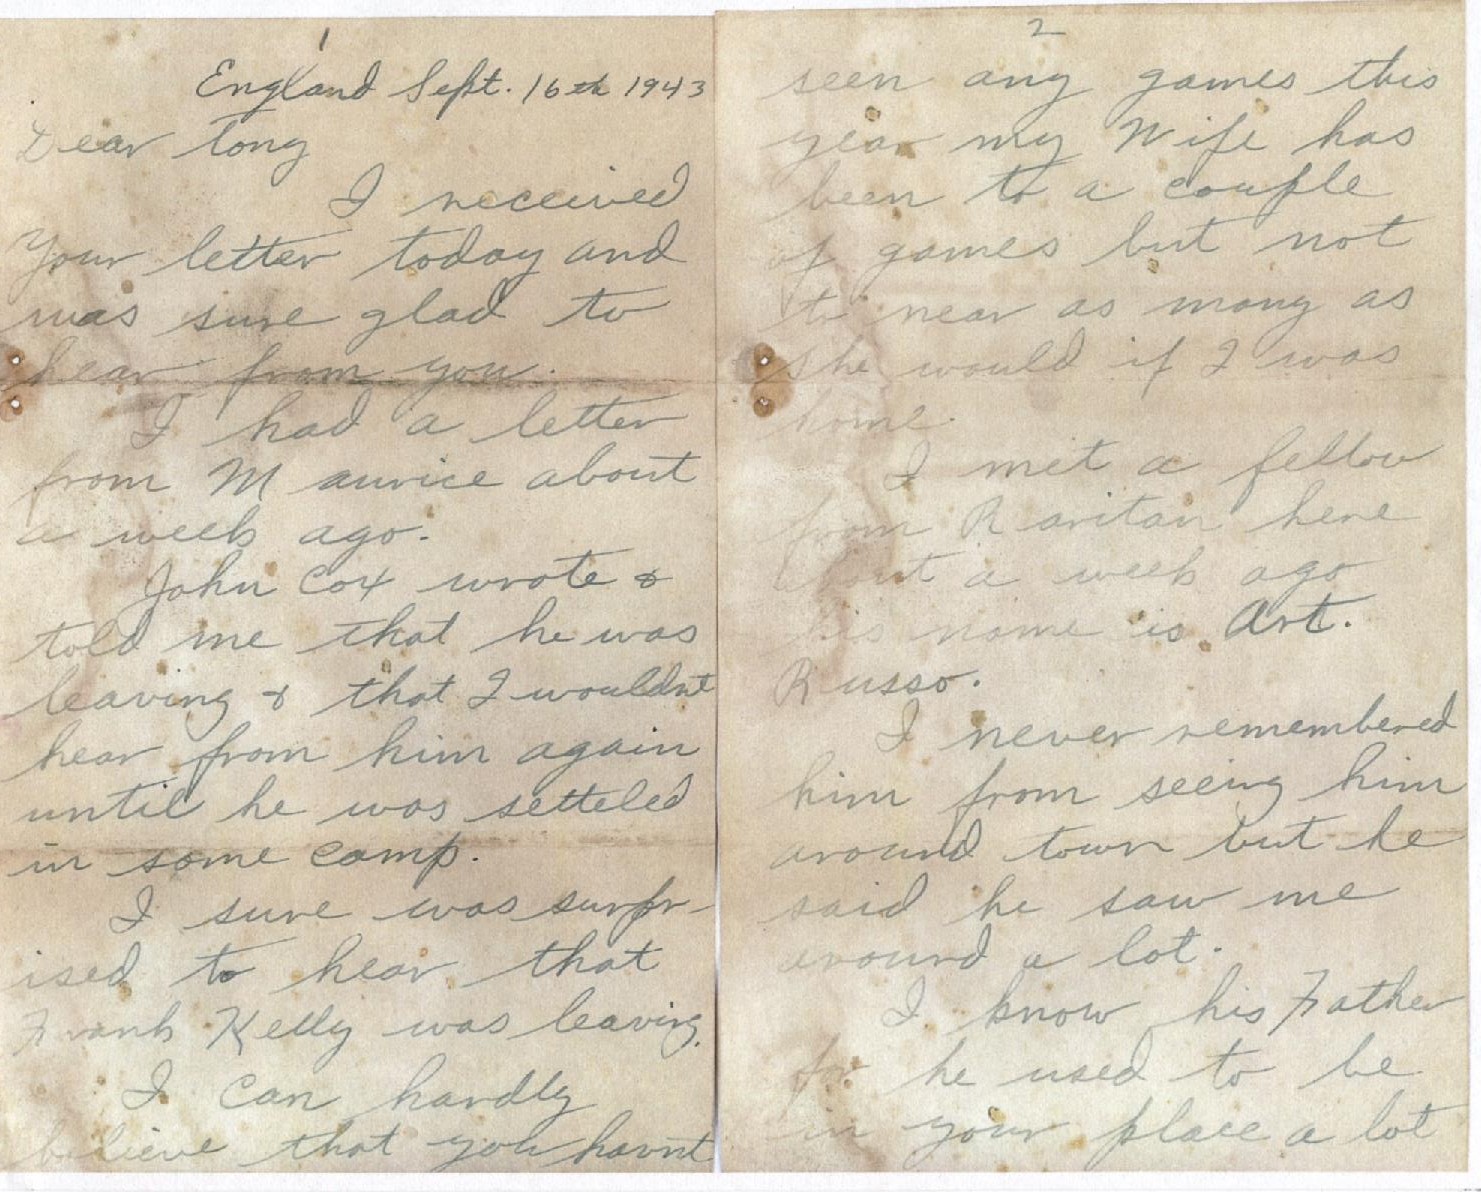 1
England Sept. 16th 1943
Dear Tony
I received
Your letter today and
was sure glad to
hear from you.
I had a letter
from Maurice about
a week ago.
John Cox wrote &
told me that he was
leaving & that I wouldnt
hear from him again
until he was setteled
in some camp.
I sure was surpr-
ised to hear that
Frank Kelly was leaving.
I can hardly
believe that you havnt
2
seen any games this
year my Wife has
been to a couple
of games but not
to near as many as
she would if I was
home.
I met a fellow
from Raritan here
about a week ago
his name is Art.
Russo.
I never remembered
him from seeing him
around town but he
said he saw me
around a lot.
I know his Father
for he used to be
in your place a lot